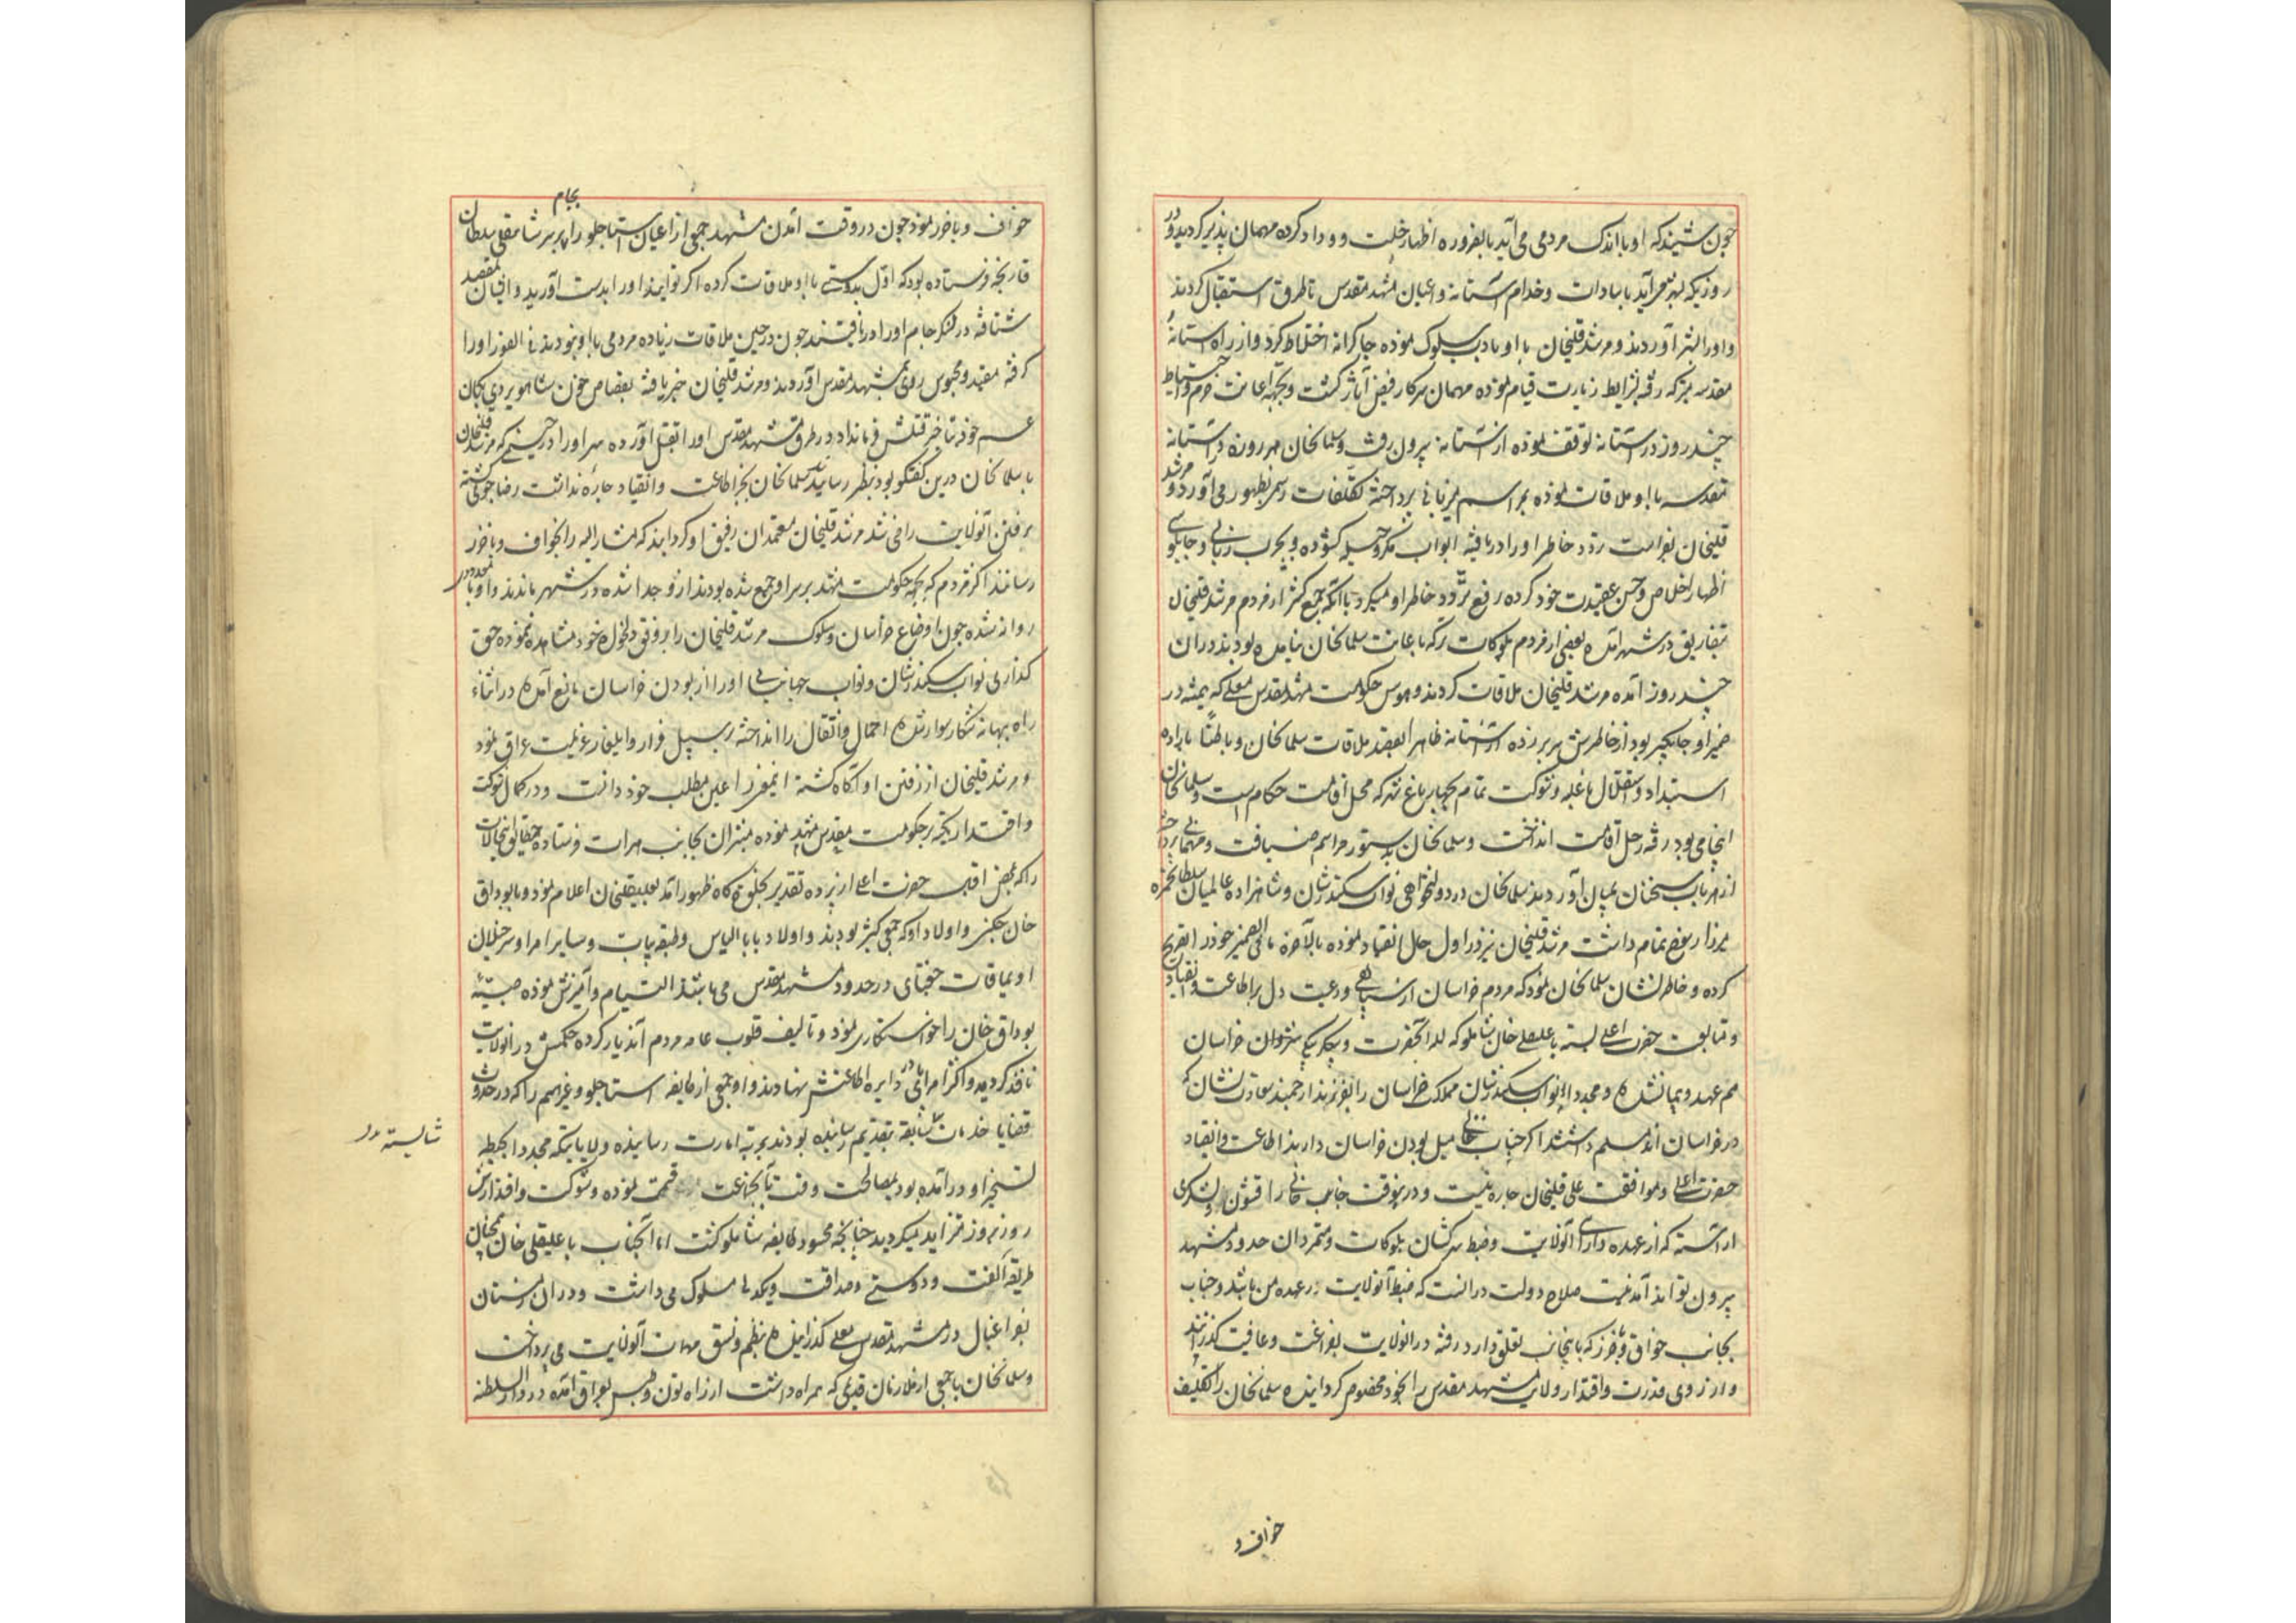 چون شنیدند که او با اندک مردمی می‌آید بالضروره اظهار خلت و وداد کرده مهمان پذیر گردید و در
روزیکه بشهر می‌آید با سادات و خدام آستانه و اعیان مشهد مقدس تا طرق استقبال کردند
و او را بشهر آوردند و مرشد قلیخان با او بادب سلوک نموده چاکرانه اختلاط کرد و از راه آستانه
مقدسه متبرکه رفته بشرایط زیارت قیام نموده مهمان سرکار فیض آثار گشت و بجهة اعانت حزم و احتیاط
چند روز در آستانه توقف نموده از آستانه بیرون نرفت و سلمانخان هر روزه در آستانه
مقدسه با او ملاقات نموده بمراسم میزبانی پرداخته تکلفات رسمی بظهور می‌آورد و مرشد
قلیخان بفراست تردد خاطر او را دریافته ابواب مکر و حیله گشوده و بچرب زبانی و چاپلوسی
اظهار اخلاص و حسن عقیدت خود کرده رفع تردد خاطر او میکرد تا آنکه جمع کثیر از مردم مرشد قلیخان
بتفاریق در شهر آمده بعضی از مردم بلوکات نیز که باعانت سلمانخان نیامده بودند در آن
چند روز آمده مرشد قلیخان ملاقات کردند و هوس حکومت مشهد مقدس معلی که همیشه در
ضمیر او جایگیر بود از خاطرش سر بر زده از آستانه ظاهرا بقصد ملاقات سلمانخان و باطنا باراده
استبداد و استقلال با غلبه و شوکت تمام بچهارباغ شهر که محل اقامت حکام است و سلمانخان
آنجا می‌بود رفته رحل اقامت انداخت و سلمانخان بدستور مراسم ضیافت و مهمانی پرداخته
از هر باب سخنان بمیان آوردند سلمانخان در دولتخواهی نواب سکندرشان و شاهزاده عالمیان سلطان حمزه
میرزا رسوخ تمام داشت مرشد قلیخان نیز در اول حال انقیاد نموده بالاخره ما فی الضمیر خود را تقریر
کرده و خاطرنشان سلمانخان نمود که مردم خراسان از سپاهی و رعیت دل بر اطاعت و انقیاد
و متابعت حضرت اعلی بسته با علیقلی خان شاملو که لله آنحضرت و بیگلربیگی خراسان
هم عهد و پیمان شده و مجددا نواب سکندرشان مملکت خراسان را بفرزند ارجمند سعادت نشان که
در خراسان اند مسلم داشتند اگر جناب خانی میل بودن خراسان دارند اطاعت و انقیاد
حضرت اعلی و موافقت علی قلیخان چاره نیست و درینوقت جناب خانی را قشون و لشکری
آراسته که از عهده دارائی آنولایت و ضبط سرکشان بلوکات و متمردان حدود مشهد
بیرون تواند آمد نیست صلاح دولت در آنست که ضبط آنولایت در عهده من باشد و جناب
بجانب خواف و باخرز که باینجانب تعلق دارد رفته در آنولایت بفراغت و عافیت گذرانند
و از روی قدرت و اقتدار ولایت مشهد مقدس را بخود مخصوص گردانیده سلمانخان را تکلیف
خواف و
بجام
خواف و باخرز نمود چون در وقت آمدن مشهد جمعی از اعیان استاجلو را بر سر شاهقلی سلطان
قارنجه فرستاده بود که اول بدوستی با او ملاقات کرده اگر توانند او را بدست آورید و ایشان بمقصد
شتافته در لنگر جام او را دریافتند چون در حین ملاقات زیاده مردمی با او نبودند فی الفور او را
گرفته مقید و محبوس روی بمشهد مقدس آوردند و مرشد قلیخان خبر یافته بقصاص خون شاهویردی بیکان
عم خود تاخیر قتلش فرمان داد در طرق مشهد مقدس او را بقتل آورده سر او را در حینی که مرشد قلیخان
با سلمانخان درین گفتگو بود بنظر رسانیدند سلمانخان بجز اطاعت و انقیاد چاره نداشت رضاجوی گشته
برفتن آنولایت راضی شد مرشد قلیخان معتمدان رفیق او گردانید که مشار الیه را بخواف و باخرز
رسانند اکثر مردم که بجهة حکومت مشهد بر سر او جمع شده بودند ازو جدا شده در شهر ماندند و او با معدودی
روانه شده چون اوضاع خراسان و سلوک مرشد قلیخان را بر وفق دلخواه خود مشاهده ننموده حق
گذاری نواب سکندرشان و نواب جهانبانی او را از بودن خراسان مانع آمده در اثناء
راه ببهانه شکار سوار شده احمال و اثقال را انداخته بر سبیل فرار و ایلغار عزیمت عراق نمود
و مرشد قلیخان از رفتن او آگاه گشته اینمعنی را عین مطلب خود دانست و در کمال شوکت
و اقتدار تکیه بر حکومت مشهد مقدس نموده مبشران بجانب هرات فرستاده حقایق اینحالات
را که بمحض اقبال حضرت اعلی از پرده تقدیر بجلوه گاه ظهور آمد بعلیقلیخان اعلام نمود و با بوداق
خان چکنی و اولاد او که جمعی کثیر بودند و اولاد بابا الیاس و طبقه بیات و سایر امرا و سرخیلان
اویماقات جغتای در حدود مشهد مقدس می باشند التیام و آمیزش نموده صبیه
بوداق خان را خواستگاری نمود و تالیف قلوب عامه مردم آندیار کرده حکمش در آنولایت
نافذ گردید و اکثر امرا پای در دایره اطاعتش نهادند و او جمعی از طایفه استاجلو و غیرهم را که در حدوث
قضایا خدمات شایسته بتقدیم رسانیده بودند بمرتبه امارت رسانیده ولایاتی که مجددا بحیطه
شایسته
تسخیر او در آمده بود بمصالحت وقت بآنجماعت قسمت نموده و شوکت و اقتدارش
روز بروز تزاید میگردید چنانچه محسود طایفه شاملو گشت اما آنجناب با علیقلی خان همچنان
طریقه الفت و دوستی و صداقت و یکدلی مسلوک می داشت و در آن زمستان
بفراغبال در مشهد مقدس معلی گذرانیده بنظم و نسق مهمات آنولایت می پرداخت
و سلمانخان با جمعی از ملازمان قدیمی که همراه داشت از راه تون و طبس بعراق آمده در دار السلطنه